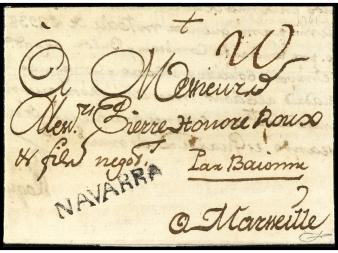 W
A Messieurs
Mess.rs Pierre Honoré Roux
& fils negod.t
Par Baionne
NAVARRA
a Marseille